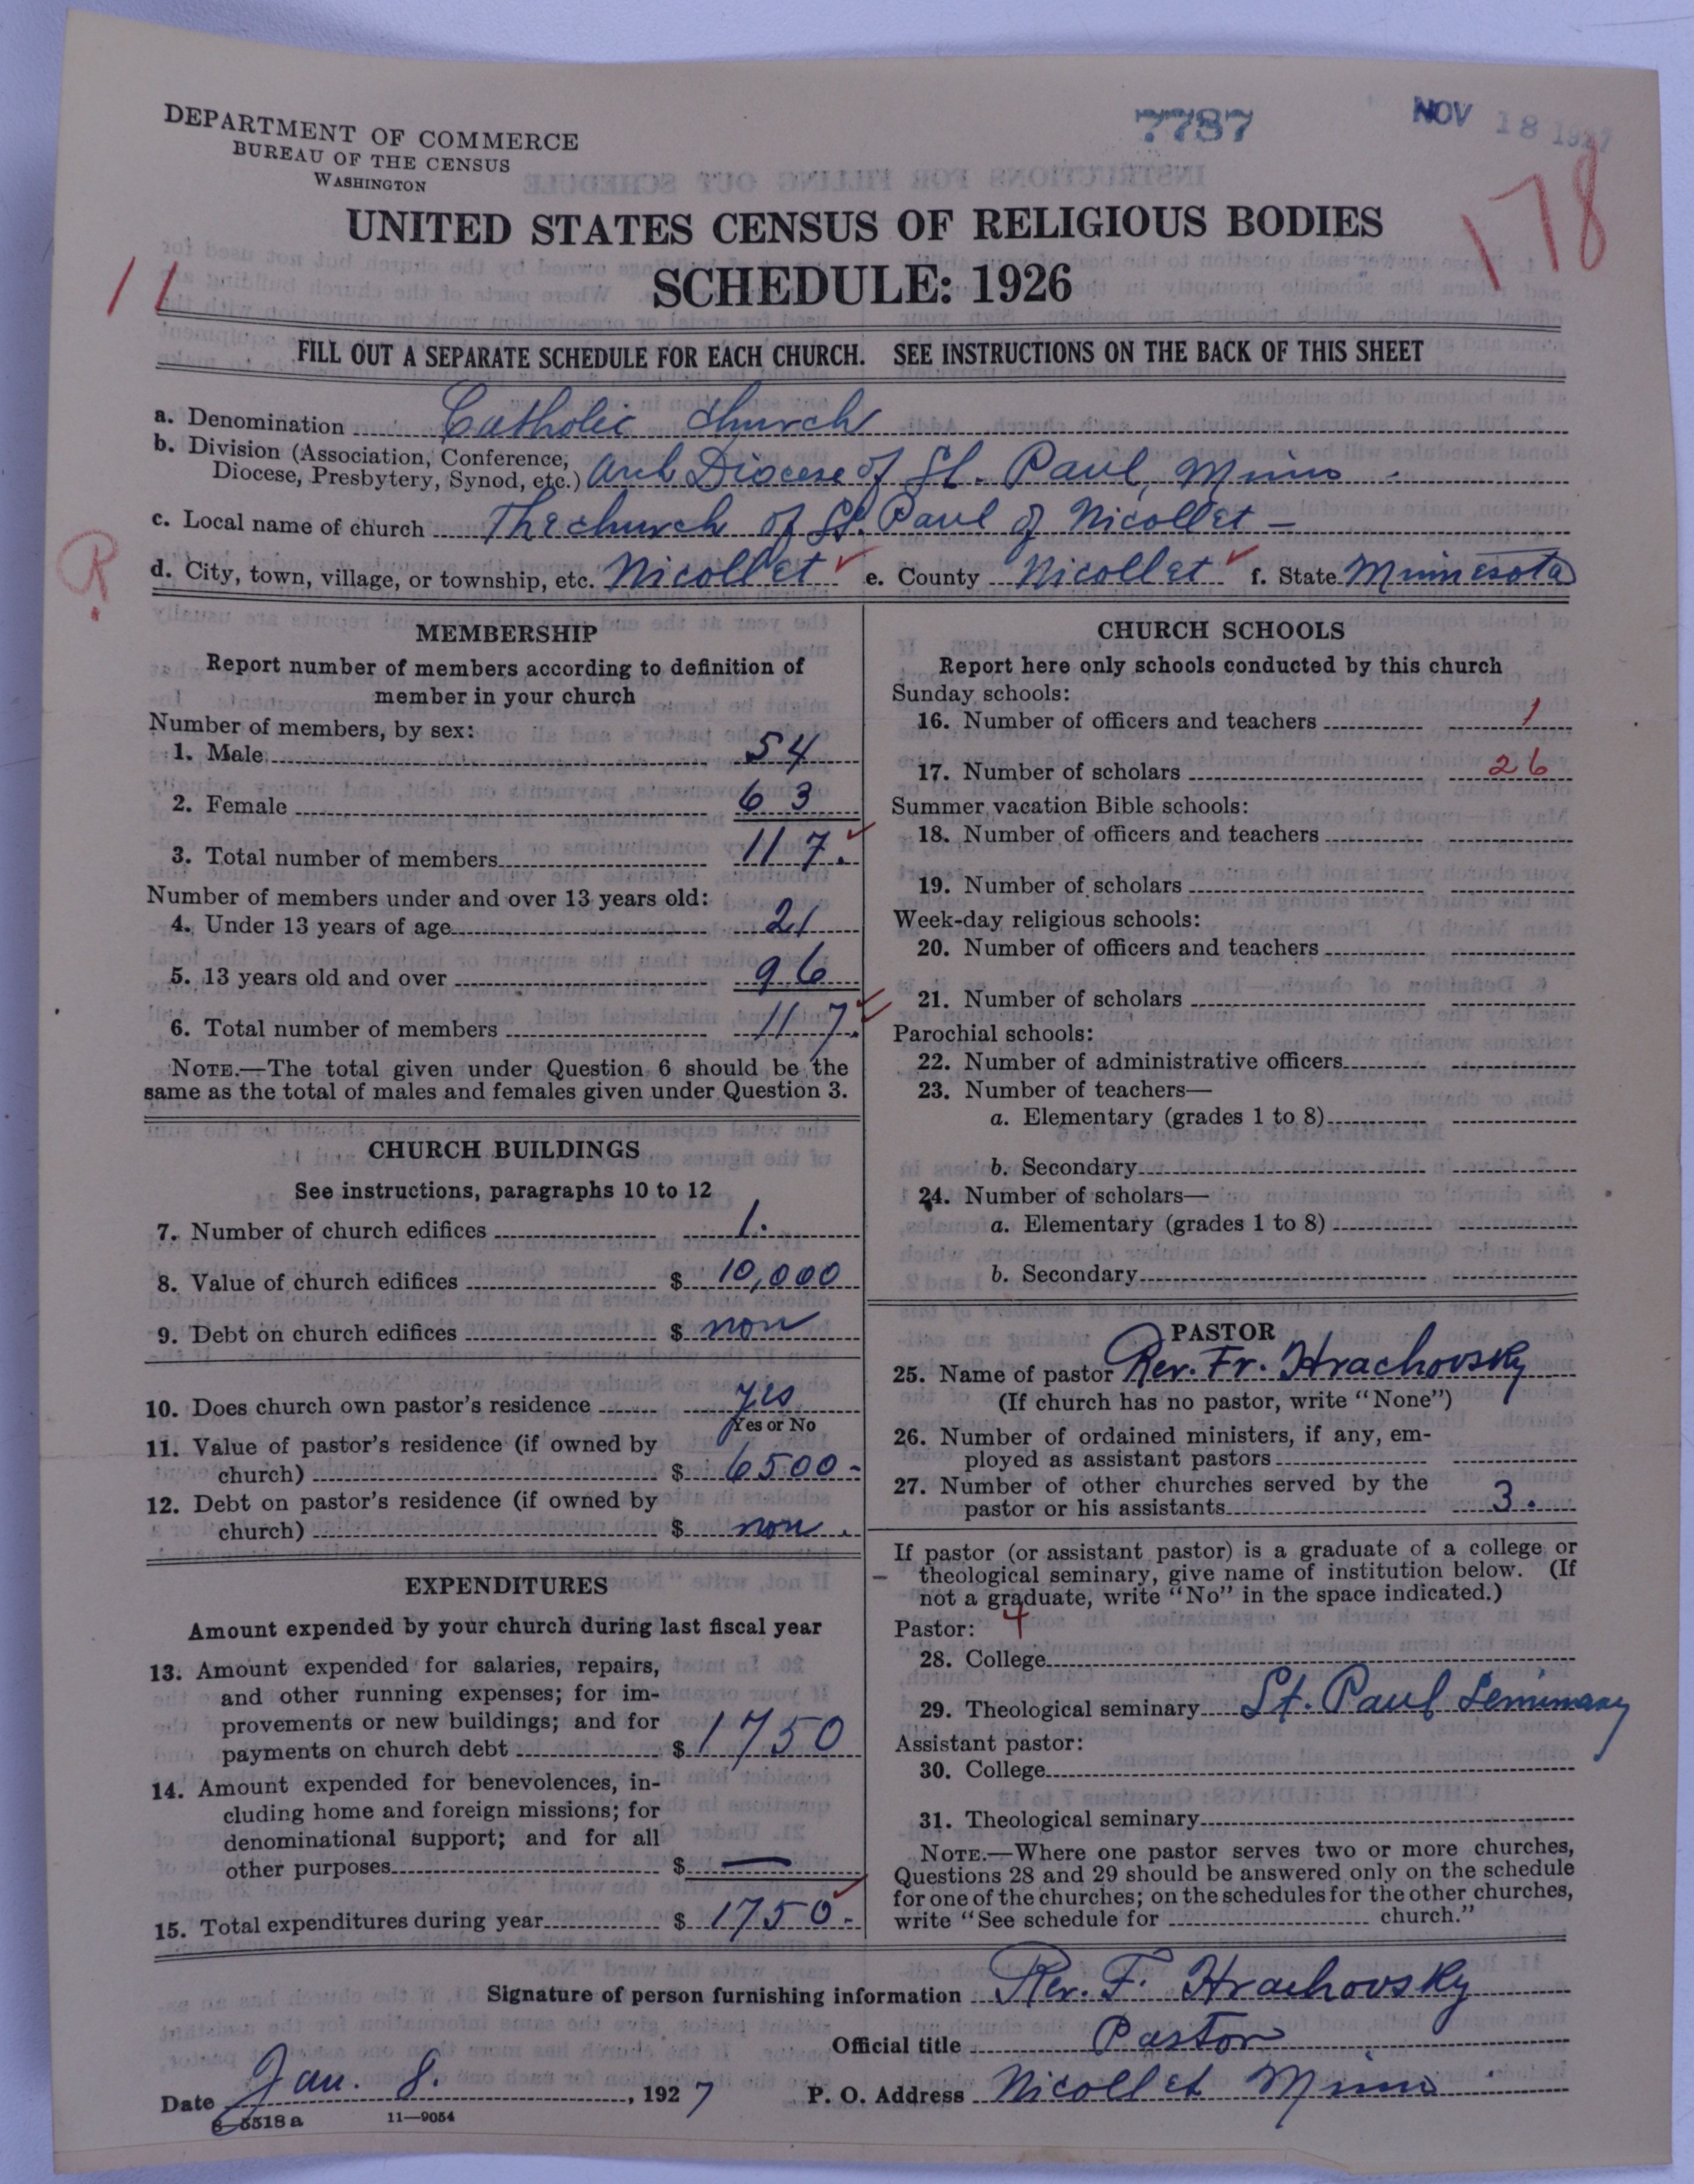 7787
NOV 18 1927
DEPARTMENT OF COMMERCE
BUREAU OF THE CENSUS
WASHINGTON
178
UNITED STATES CENSUS OF RELIGIOUS BODIES
SCHEDULE: 1926
11
FILL OUT A SEPARATE SCHEDULE FOR EACH CHURCH. SEE INSTRUCTIONS ON THE BACK OF THIS SHEET
a. Denomination Catholic church
b. Division (Association, Conference, Diocese, Presbytery, Synod, etc.) Arch Diocese of St. Paul, Minn
c. Local name of church The church of St. Paul of Nicollet –
R
d. City, town, village, or township, etc. Nicollet ✓ e. County Nicollet ✓ f. State Minnesota
MEMBERSHIP
Report number of members according to definition of
member in your church
Number of members, by sex:
1. Male 54
2. Female 63
3. Total number of members 117. ✓
Number of members under and over 13 years old:
4. Under 13 years of age 21
5. 13 years old and over 96
6. Total number of members 117. ✓
NOTE.—The total given under Question 6 should be the
same as the total of males and females given under Question 3.
CHURCH BUILDINGS
See instructions, paragraphs 10 to 12
7. Number of church edifices 1.
8. Value of church edifices $ 10,000
9. Debt on church edifices $ non
10. Does church own pastor's residence yes
Yes or No
11. Value of pastor's residence (if owned by
church) $ 6500-
12. Debt on pastor's residence (if owned by
church) $ non.
EXPENDITURES
Amount expended by your church during last fiscal year
13. Amount expended for salaries, repairs,
and other running expenses; for im-
provements or new buildings; and for
payments on church debt $ 1750
14. Amount expended for benevolences, in-
cluding home and foreign missions; for
denominational support; and for all
other purposes $ —
15. Total expenditures during year $ 1750.- ✓
CHURCH SCHOOLS
Report here only schools conducted by this church
Sunday schools:
16. Number of officers and teachers 1
17. Number of scholars 26
Summer vacation Bible schools:
18. Number of officers and teachers
19. Number of scholars
Week-day religious schools:
20. Number of officers and teachers
21. Number of scholars
Parochial schools:
22. Number of administrative officers
23. Number of teachers—
a. Elementary (grades 1 to 8)
b. Secondary
24. Number of scholars—
a. Elementary (grades 1 to 8)
b. Secondary
PASTOR
25. Name of pastor Rev. Fr. Hrachovsky
(If church has no pastor, write "None")
26. Number of ordained ministers, if any, em-
ployed as assistant pastors
27. Number of other churches served by the
pastor or his assistants 3.
If pastor (or assistant pastor) is a graduate of a college or
theological seminary, give name of institution below. (If
not a graduate, write "No" in the space indicated.)
Pastor: 4
28. College
29. Theological seminary St. Paul Seminary
Assistant pastor:
30. College
31. Theological seminary
NOTE.—Where one pastor serves two or more churches,
Questions 28 and 29 should be answered only on the schedule
for one of the churches; on the schedules for the other churches,
write "See schedule for church."
Signature of person furnishing information Rev. F. Hrachovsky
Official title Pastor
Date Jan. 8., 1927 P. O. Address Nicollet Minn
8-5518a 11-9054